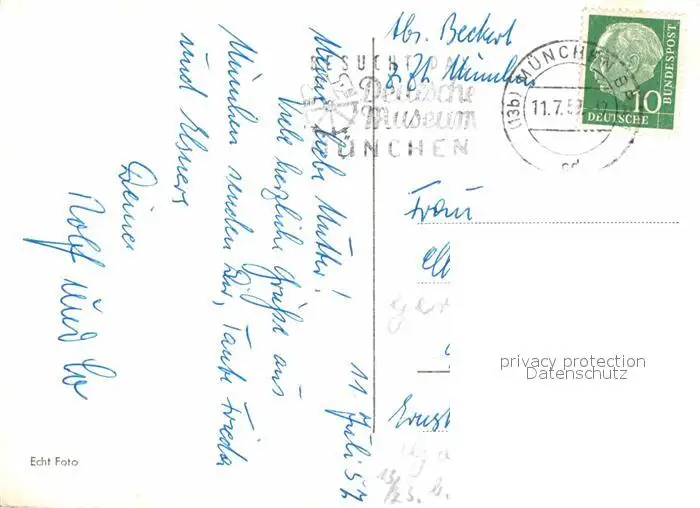 Abs. Beckert
z. Zt. München
BESUCHT DAS
Deutsche
Museum
MÜNCHEN
(13b) MÜNCHEN
11.7.57
DEUTSCHE BUNDESPOST
10
11. Juli 57
Meine liebe Mutter!
Viele herzliche Grüße aus
München senden Dir, Tante Frieda
und Elsners
Deine
Rolf und Lo
Frau
Ernst
privacy protection
Datenschutz
Echt Foto